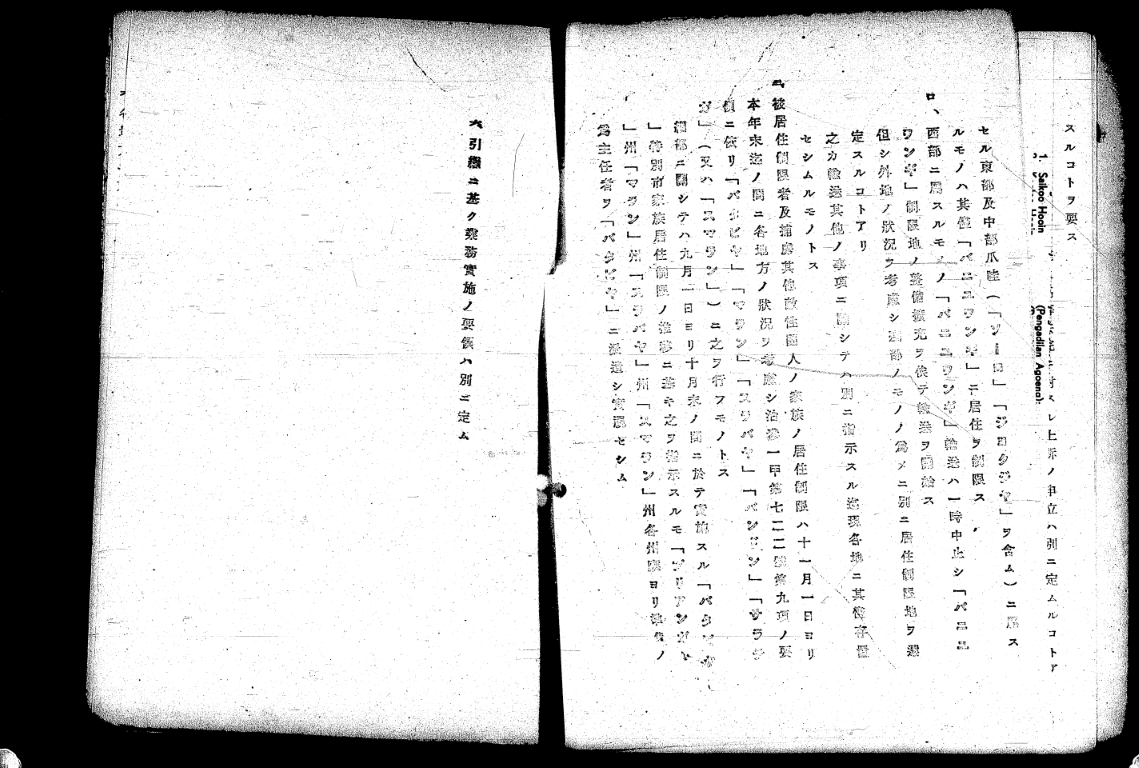 スルコトヲ要ス
1. Saikoo Hooin
(Pengadilan Agoeng):
ベシ上訴ノ申立ハ別ニ定ムルコトア
セル東部及中部爪哇(「ソーロ」「ジョクジャ」ヲ含ム)ニ居ス
ルモノハ其儘「バニユワンギ」ニ居住ヲ制限ス
ロ、西部ニ居スルモノノ「バニユワンギ」輸送ハ一時中止シ「バニユ
ワンギ」制限地ノ整備擴充ヲ俟テ輸送ヲ開始ス
但シ外地ノ狀況ヲ考慮シ西部ノモノノ爲メニ別ニ居住制限地ヲ選
定スルコトアリ
之カ輸送其他ノ事項ニ關シテハ別ニ指示スル迄現各地ニ其儘存置
セシムルモノトス
被居住制限者及捕虜其他敵性國人ノ家族ノ居住制限ハ十一月一日ヨリ
本年末迄ノ間ニ各地方ノ狀況ヲ考慮シ治參一甲第七二二號第九項ノ要
領ニ依リ「バタビヤ」「マラン」「スラバヤ」「バンドン」「サラチ
ガ」(又ハ「スマラン」)ニ之ヲ行フモノトス
細部ニ關シテハ九月一日ヨリ十月末ノ間ニ於テ實施スル「バタビヤ
」特別市家族居住制限ノ推移ニ基キ之ヲ指示スルモ「プリアンガン
」州「マラン」州「スラバヤ」州「スマラン」州各州廳ヨリ
爲主任者ヲ「バタビヤ」ニ派遣シ實習セシム
六、引繼ニ基ク業務實施ノ要領ハ別ニ定ム